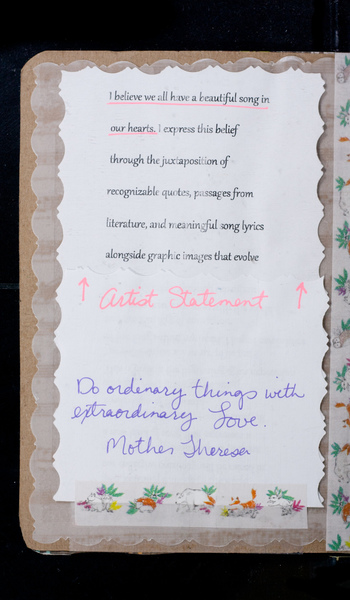 I believe we all have a beautiful song in
our hearts. I express this belief
through the juxtaposition of
recognizable quotes, passages from
literature, and meaningful song lyrics
alongside graphic images that evolve
Artist Statement
Do ordinary things with
extraordinary Love.
Mother Theresa